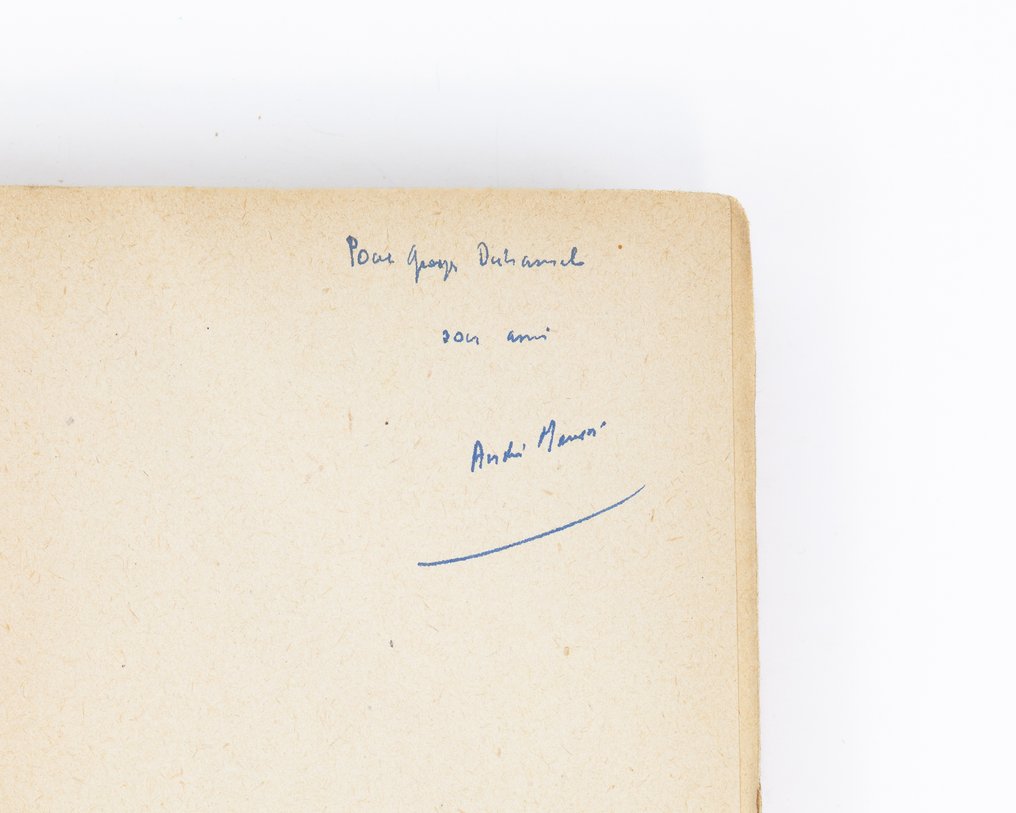 Pour Georges Duhamel
son ami
André Maurois